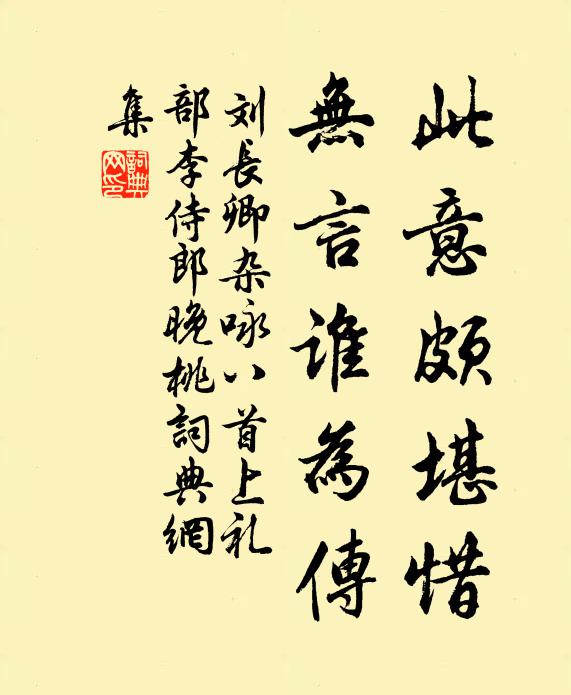 此意頗堪惜
無言誰為傳
刘長卿杂咏八首上礼
部李侍郎晚桃詞典網
集
詞典
网印